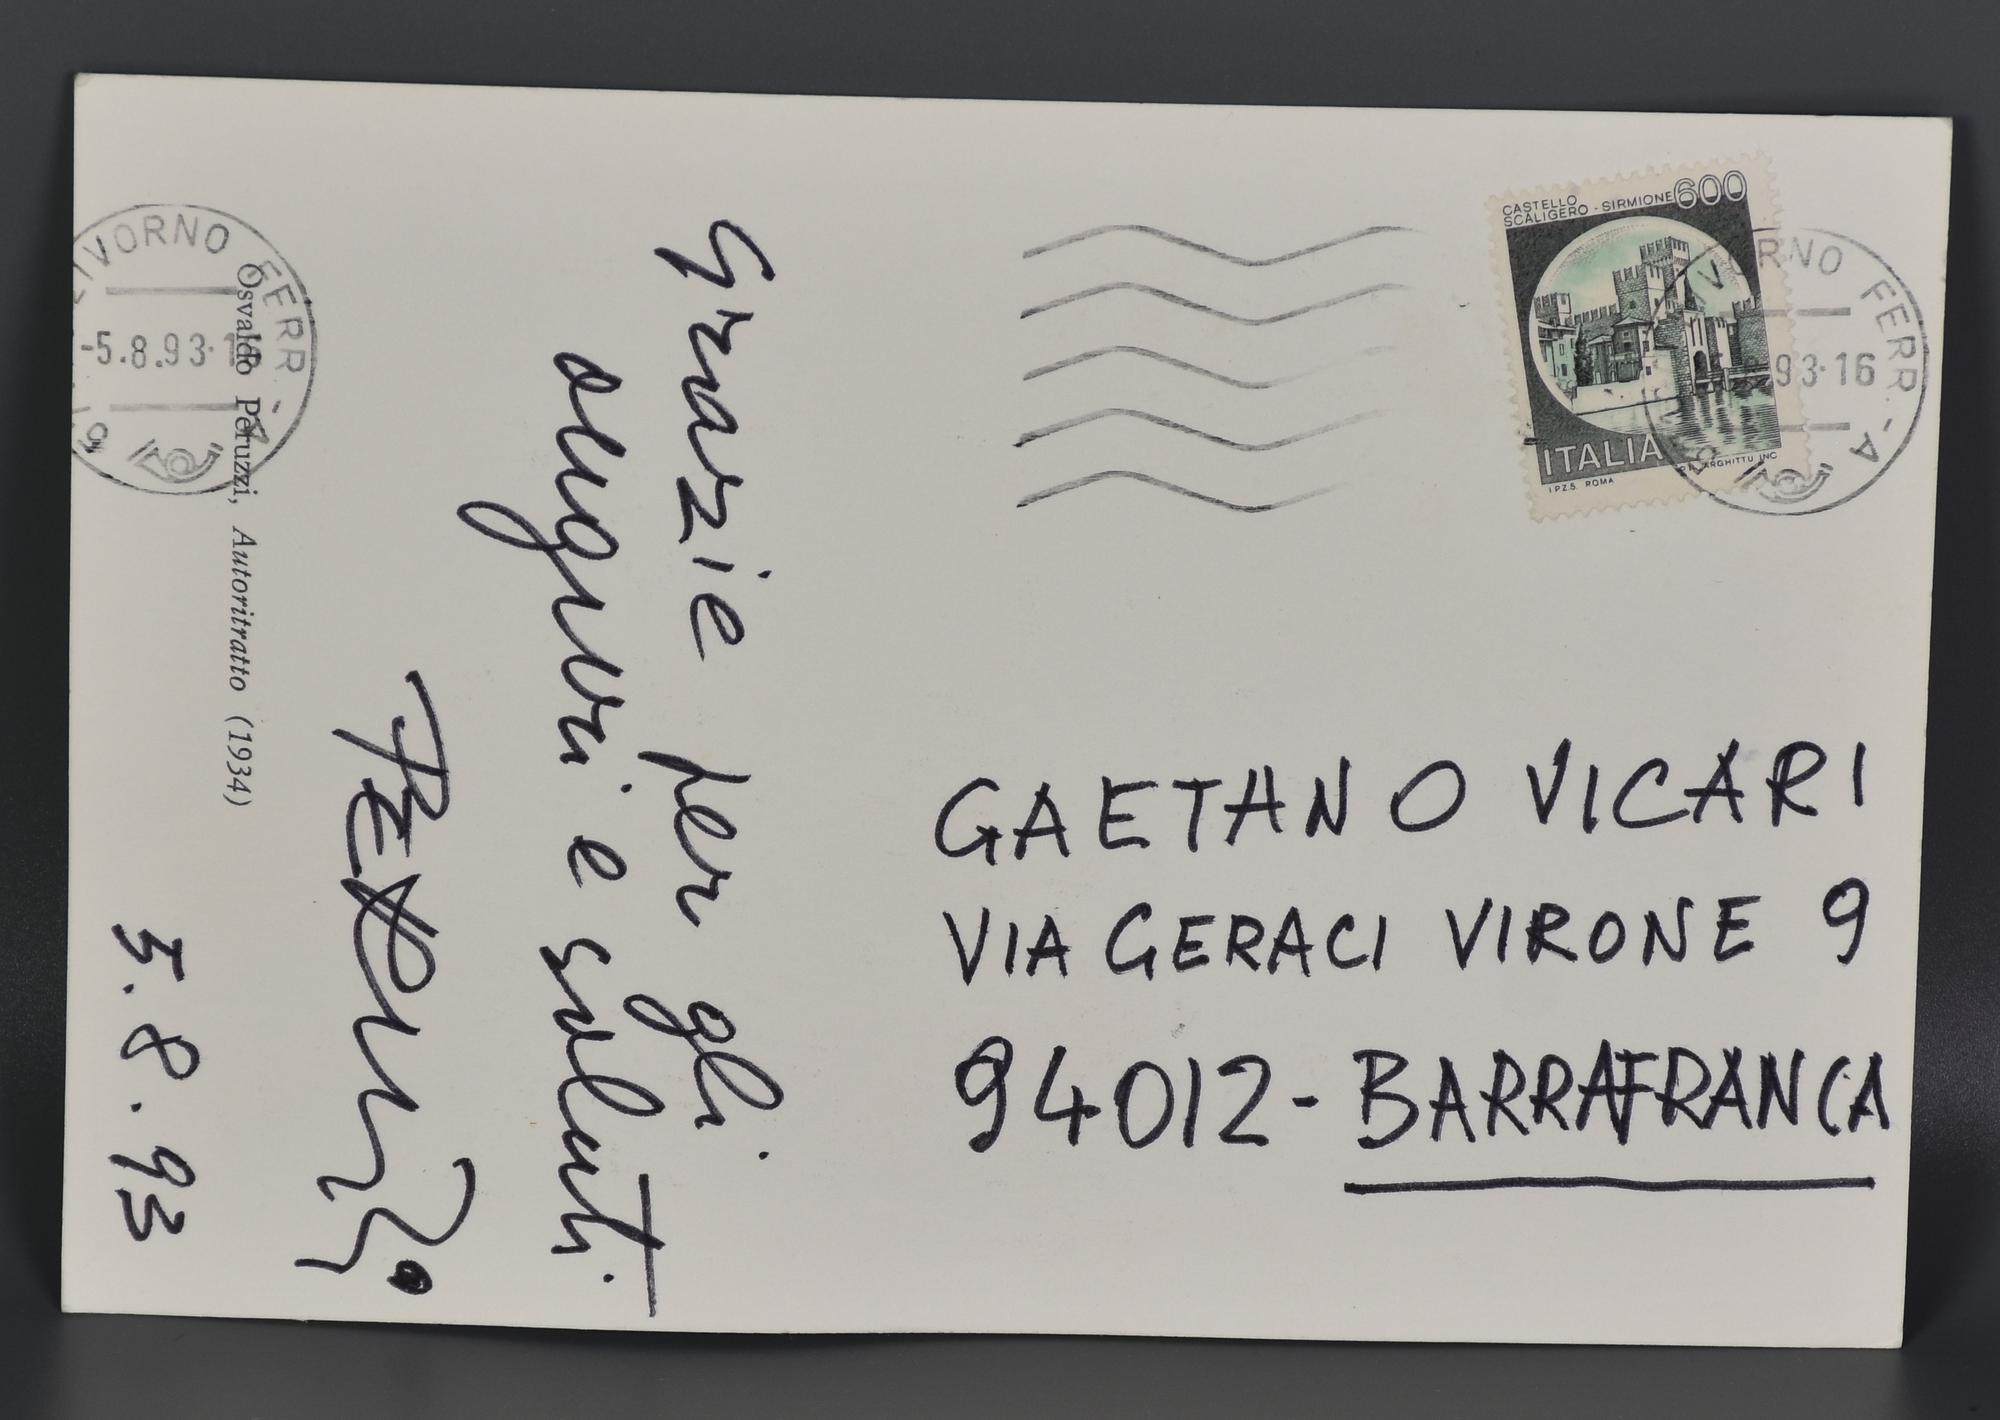 Osvaldo Peruzzi, Autoritratto (1934)
Grazie per gli
auguri e saluti
Peruzzi
5.8.93
LIVORNO FERR.-A
-5.8.93-16
CASTELLO
SCALIGERO - SIRMIONE 600
ITALIA
I.P.Z.S. ROMA
LIVORNO FERR.-A
93-16
GAETANO VICARI
VIA GERACI VIRONE 9
94012-BARRAFRANCA